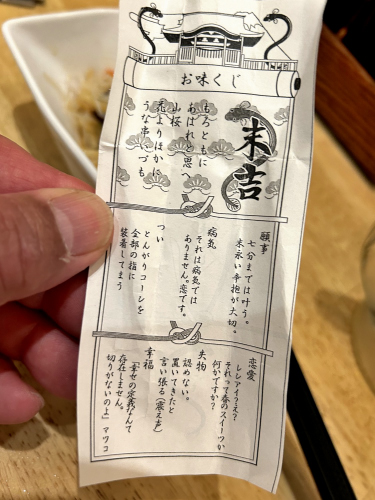 お味くじ
末吉
もろともに
あはれと思へ
山桜
花よりほかに
うな串、づも
願事
七分までは叶う。
末永い辛抱が大切。
病気
それは病気では
ありません。恋です。
つい
とんがりコーンを
全部の指に
装着してまう
恋愛
レンアイ?え?
それって春のスイーツか
何かですか?
失物
認めない。
置いてきたと
言い張る(震え声)
幸福
「幸せの定義なんて
存在しません。
切りがないのよ」マツコ